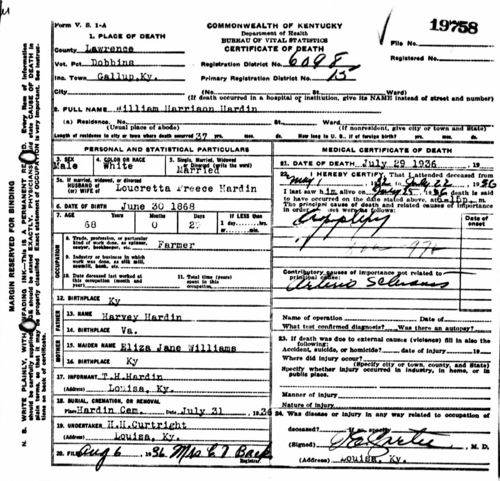 Form V. S. 1-A
COMMONWEALTH OF KENTUCKY
Department of Health
BUREAU OF VITAL STATISTICS
CERTIFICATE OF DEATH
File No. 19758
Registered No.
1. PLACE OF DEATH
County Lawrence
Vot. Pct Dobbins
Inc. Town Gallup,Ky.
Registration District No. 6098
Primary Registration District No. 15
City (No. St. Ward)
(If death occurred in a hospital or institution, give its NAME instead of street and number)
2. FULL NAME William Harrison Hardin
(a) Residence. No. St., Ward.
(Usual place of abode) (If nonresident, give city or town and State)
Length of residence in city or town where death occurred 37 yrs. mos. ds. How long in U. S., if of foreign birth? yrs. mos. ds.
MARGIN RESERVED FOR BINDING
PERSONAL AND STATISTICAL PARTICULARS
3. SEX Male
4. COLOR OR RACE White
5. Single, Married, Widowed or Divorced (write the word) Married
5a. If married, widowed, or divorced
HUSBAND of
(or) WIFE of Loucretta Preece Hardin
6. DATE OF BIRTH June 30 1868
7. AGE 68 0 29 If LESS than
8. Trade, profession, or particular kind of work done, as spinner, sawyer, bookkeeper, etc. Farmer
9. Industry or business in which work was done, as silk mill, sawmill, bank, etc.
10. Date deceased last worked at this occupation (month and year)
11. Total time (years) spent in this occupation
12. BIRTHPLACE Ky
FATHER
13. NAME Harvey Hardin
14. BIRTHPLACE Va.
MOTHER
15. MAIDEN NAME Eliza Jane Williams
16. BIRTHPLACE Ky
17. INFORMANT T.H.Hardin
(Address) Louisa, Ky.
18. BURIAL, CREMATION, OR REMOVAL
Place Hardin Cem. Date July 31 1936
19. UNDERTAKER H.H.Curtright
(Address) Louisa, Ky.
20. FILED Aug 6 1936 Mrs
Registrar.
MEDICAL CERTIFICATE OF DEATH
21. DATE OF DEATH July 29 1936
22. I HEREBY CERTIFY, That I attended deceased from
May 1 to July 22, 1936
I last saw him alive on death is said
to have occurred on the date stated above, at m.
The principal cause of death and related causes of importance in order of onset were as follows:
Date of onset
Apoplexy
Contributory causes of importance not related to principal cause:
Name of operation Date of
What test confirmed diagnosis? Was there an autopsy?
23. If death was due to external causes (violence) fill in also the following:
Accident, suicide, or homicide? date of injury 19
Where did injury occur?
(Specify city or town, county, and State)
Specify whether injury occurred in industry, in home, or in public place.
Manner of injury
Nature of injury
24. Was disease or injury in any way related to occupation of deceased?
If so, specify
(Signed) M. D.
(Address) Louisa, Ky.